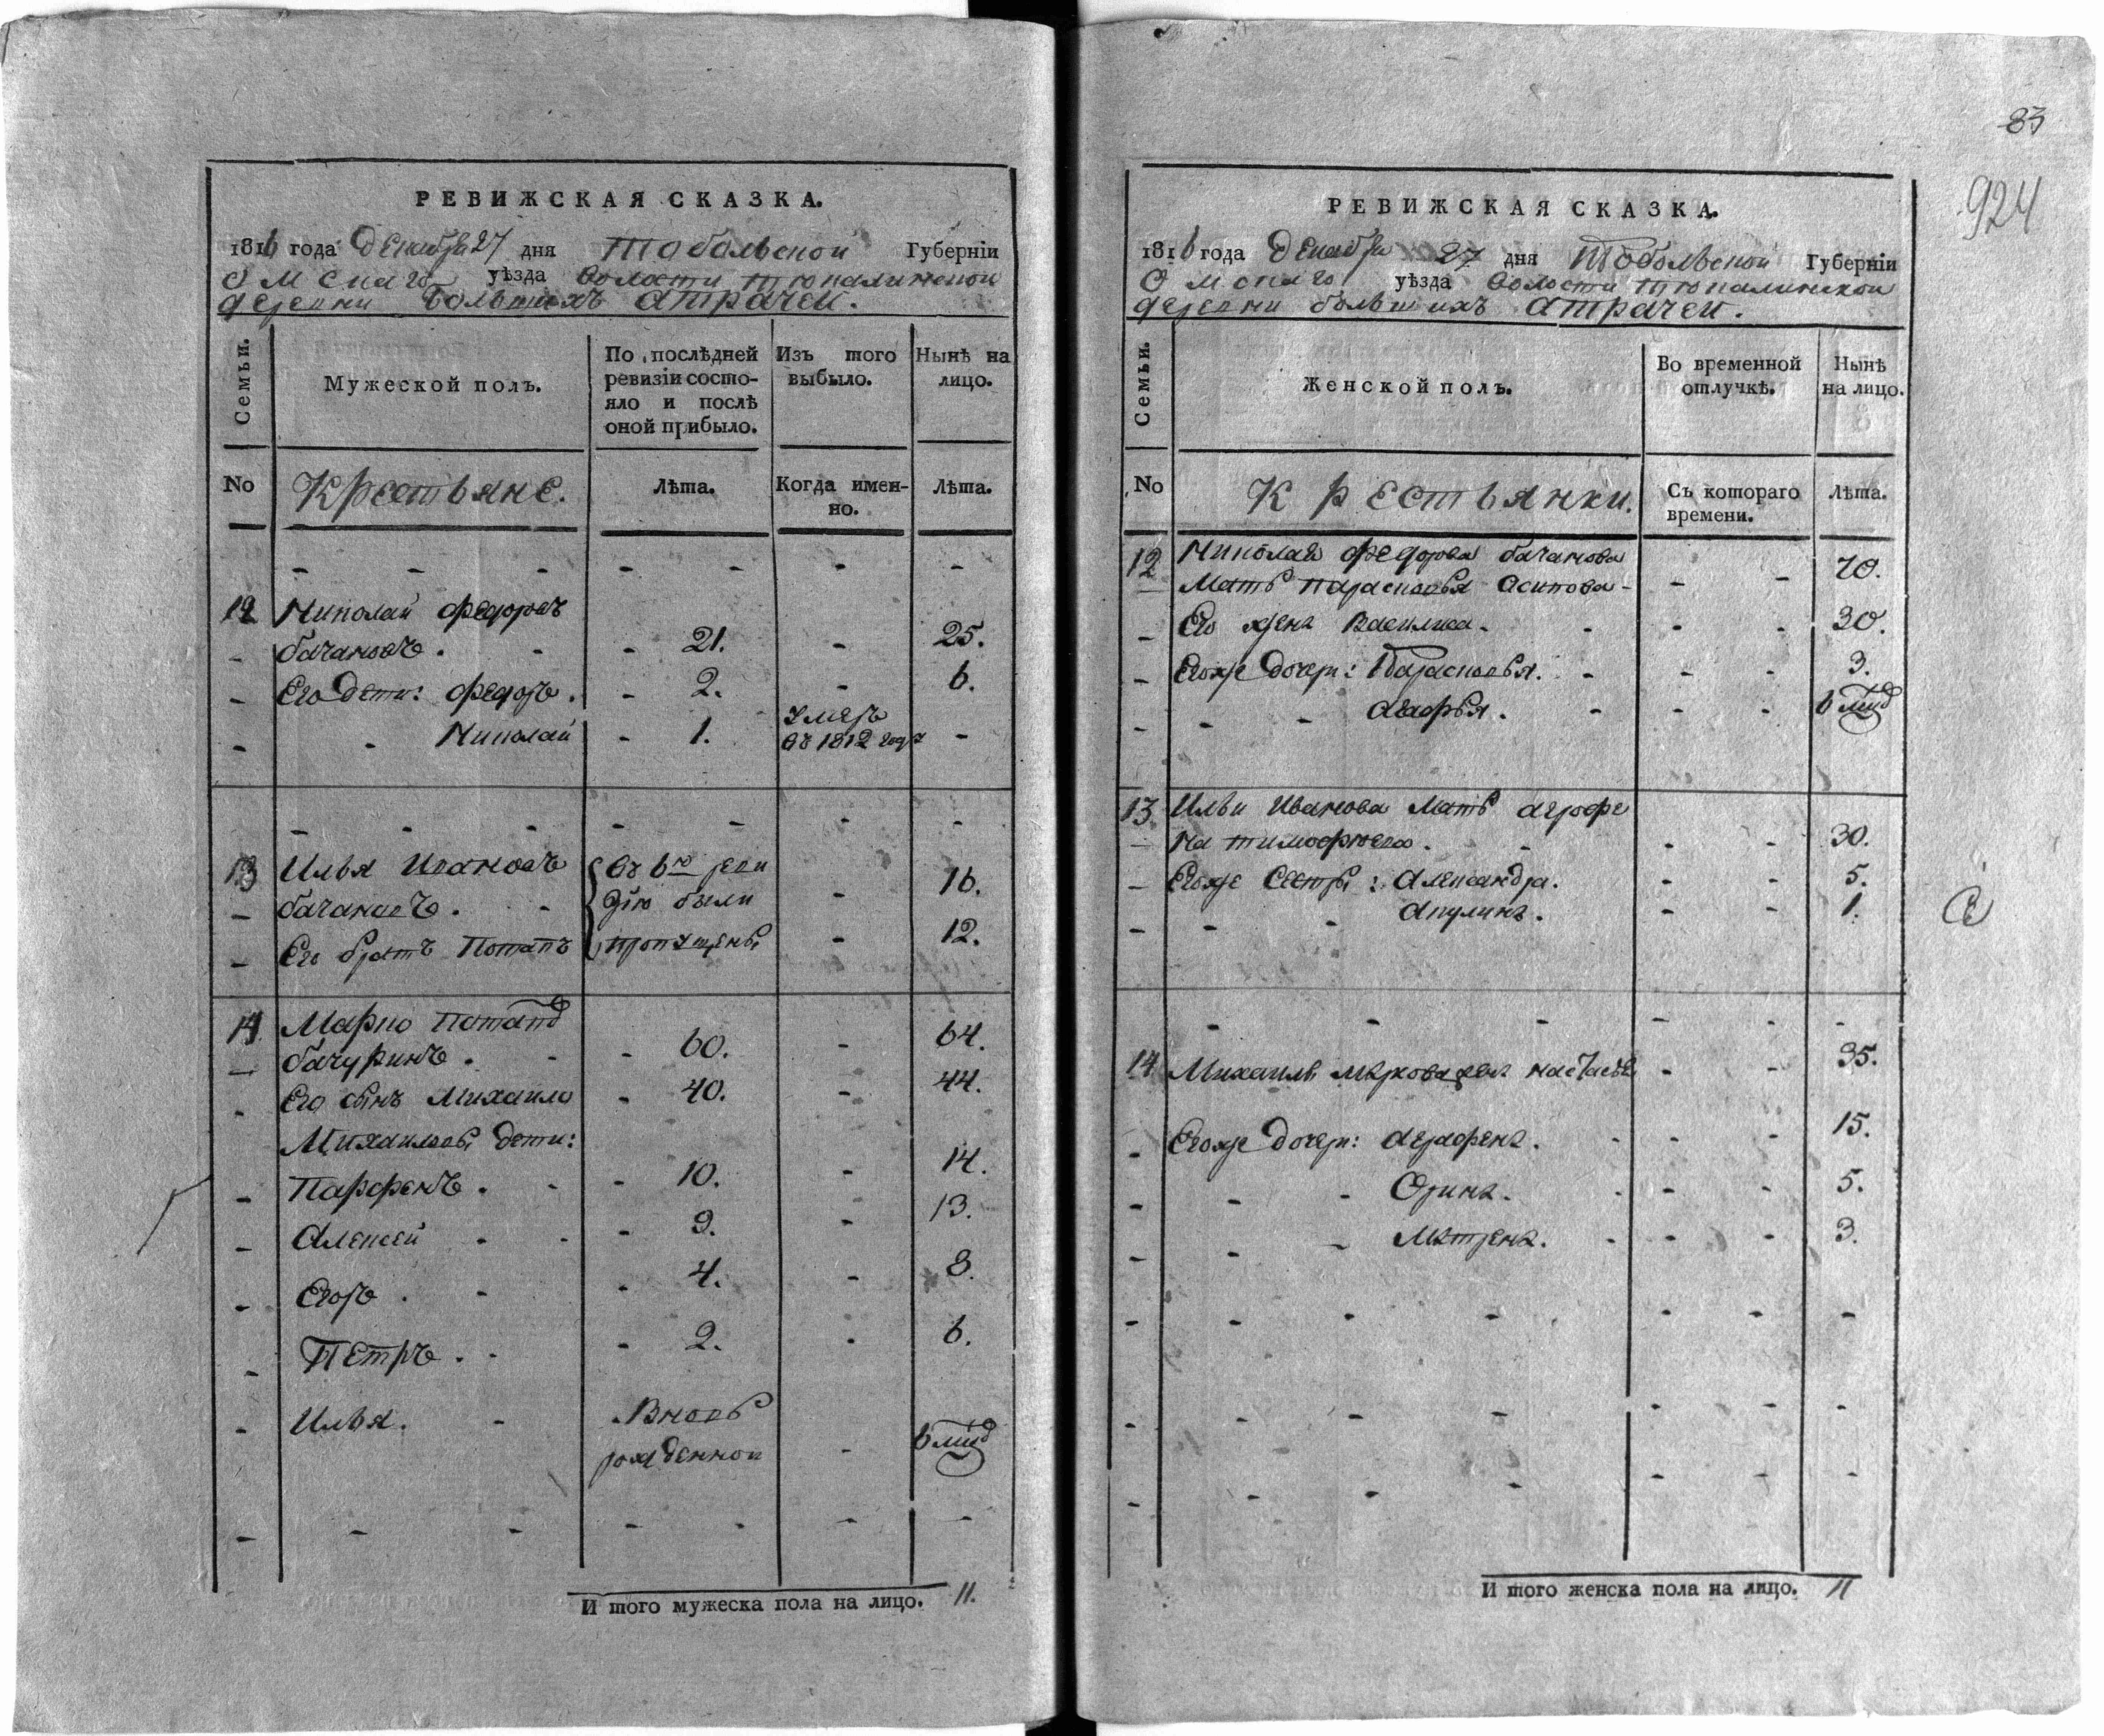 РЕВИЖСКАЯ СКАЗКА.
1816 года Декабря 27 дня Тобольской Губерніи
Омскаго уѣзда волости тюкалинской
деревни большихъ атрачей.
Семьи. Мужеской полъ. По послѣдней ревизіи состояло и послѣ оной прибыло. Изъ того выбыло. Нынѣ на лицо.
No Крестьяне. Лѣта. Когда именно. Лѣта.
12 Николай Федоровъ
бачановъ. - 21. - 25.
Его дети: Федоръ. - 2. - 6.
Николай - 1. умеръ въ 1812 году -
13 Илья Ивановъ въ 6ю реви
бачановъ. зію были - 16.
Его братъ Потапъ пропущены - 12.
14 Марко Потапо
бачуринъ. - 60. - 64.
Его сынъ Михаило - 40. - 44.
Михаиловы дети:
Парфенъ. - 10. - 14.
Алексей - 9. - 13.
Егоръ. - 4. - 8.
Петръ. - 2. - 6.
Илья. - Вновь
рожденной - 6 мцо
И того мужеска пола на лицо. 11.
83
924
РЕВИЖСКАЯ СКАЗКА.
1816 года Декабря 27 дня Тобольской Губерніи
Омскаго уѣзда волости тюкалинской
деревни большихъ атрачей.
Семьи. Женской полъ. Во временной отлучкѣ. Нынѣ на лицо.
No Крестьянки. Съ котораго времени. Лѣта.
12 Николая Федорова бачанова
Мать парасковья осипова - - - 70.
Его жена Василиса - - - 30.
Егоже дочери: Парасковья. - - - 3.
агафья. - - - 6 мцо
13 Ильи Иванова Мать аграфе
на тимофеева. - - 30.
Егоже Сестры: Александра. - - 5.
Акулина. - - 1.
14 Михаилы Маркова жена настасья - - 35.
Егоже дочери: аграфена. - - - 15.
Орина. - - - 5.
Матрена. - - - 3.
И того женска пола на лицо. 11